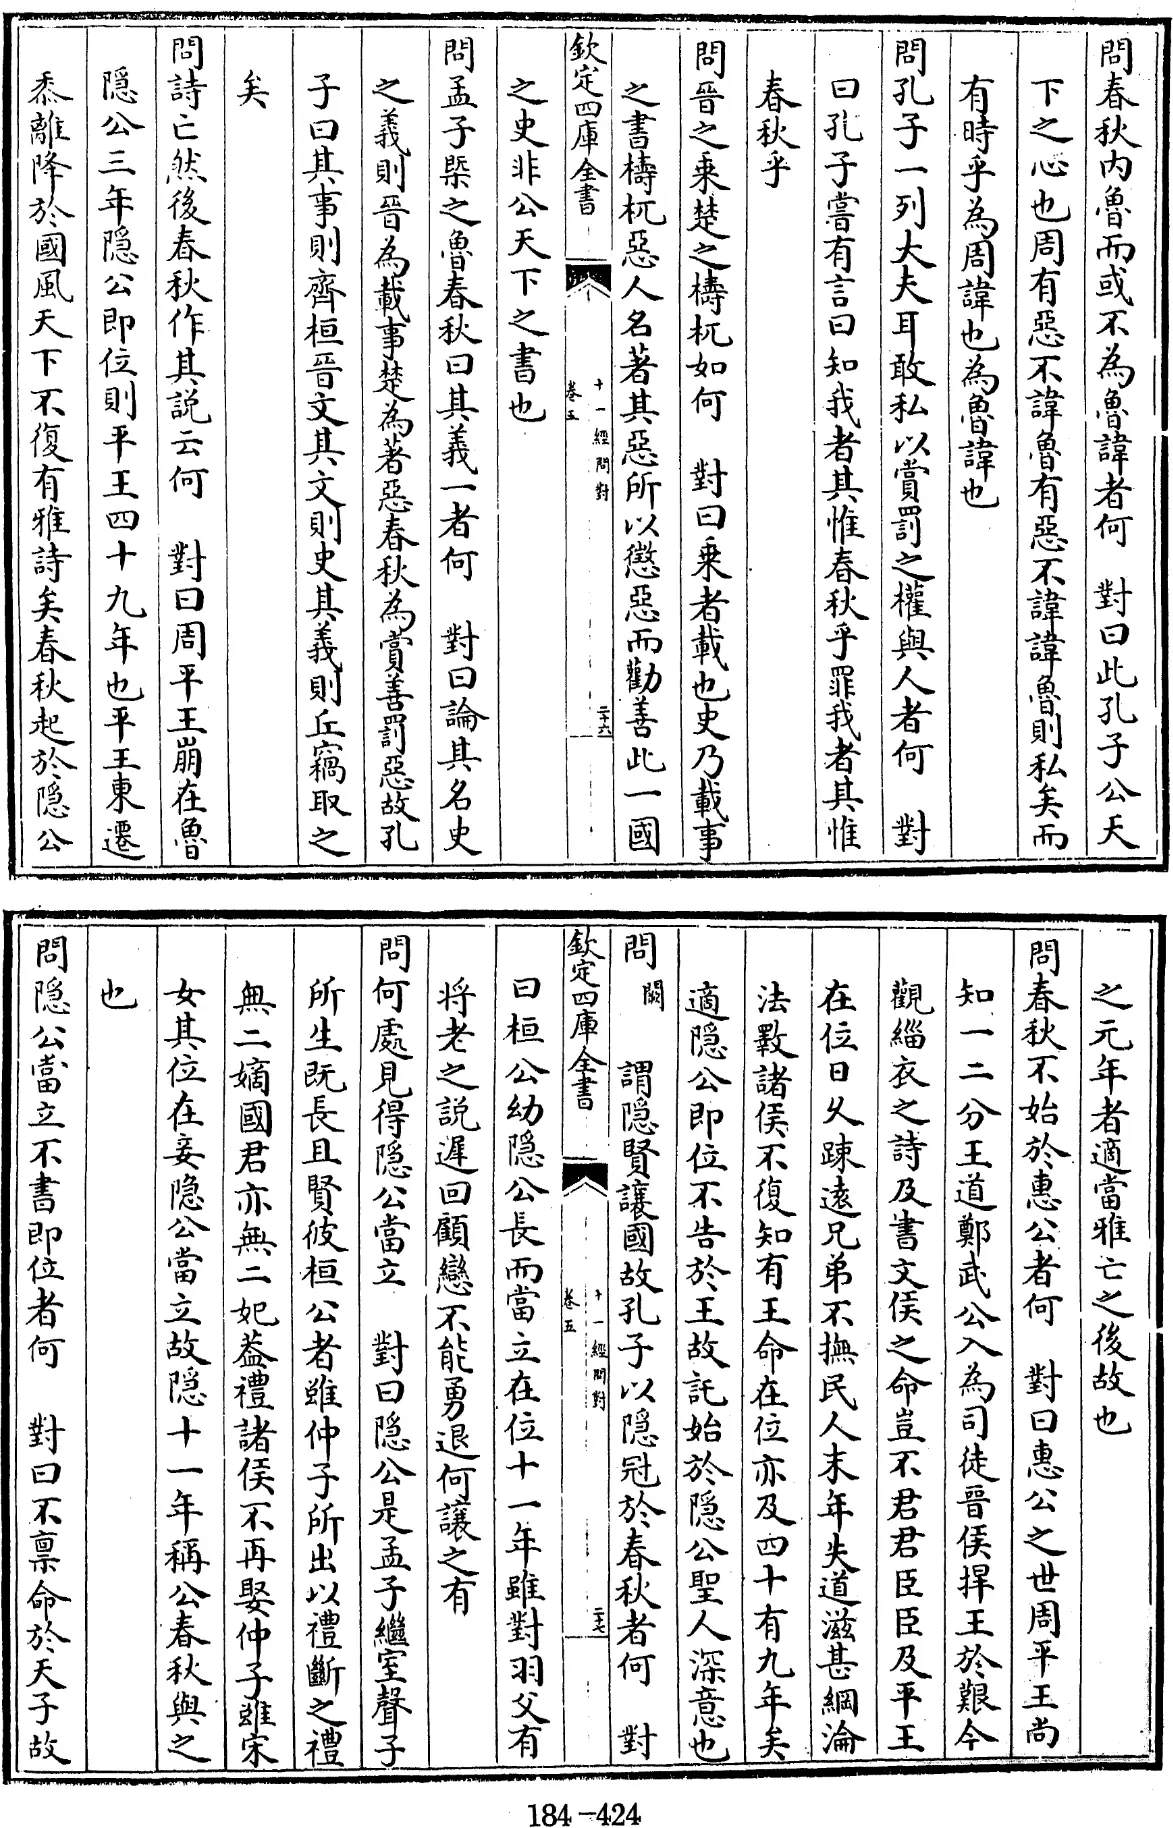 問春秋内魯而或不為魯諱者何　對曰此孔子公天
下之心也周有惡不諱魯有惡不諱諱魯則私矣而
有時乎為周諱也為魯諱也
問孔子一列大夫耳敢私以賞罰之權與人者何　對
曰孔子嘗有言曰知我者其惟春秋乎罪我者其惟
春秋乎
問晉之乘楚之檮杌如何　對曰乘者載也史乃載事
之書檮杌惡人名著其惡所以懲惡而勸善此一國
欽定四庫全書
卷五
十一經問對
二十六
之史非公天下之書也
問孟子槩之魯春秋曰其義一者何　對曰論其名史
之義則晉為載事楚為著惡春秋為賞善罰惡故孔
子曰其事則齊桓晉文其文則史其義則丘竊取之
矣
問詩亡然後春秋作其説云何　對曰周平王崩在魯
隱公三年隱公即位則平王四十九年也平王東遷
黍離降於國風天下不復有雅詩矣春秋起於隱公
之元年者適當雅亡之後故也
問春秋不始於惠公者何　對曰惠公之世周平王尚
知一二分王道鄭武公入為司徒晉侯捍王於艱今
觀緇衣之詩及書文侯之命豈不君君臣臣及平王
在位日久踈遠兄弟不撫民人末年失道滋甚綱淪
法斁諸侯不復知有王命在位亦及四十有九年矣
適隱公即位不告於王故託始於隱公聖人深意也
問　闕　謂隱賢讓國故孔子以隱冠於春秋者何　對
欽定四庫全書
卷五
十一經問對
二十七
曰桓公幼隱公長而當立在位十一年雖對羽父有
將老之説遲回顧戀不能勇退何讓之有
問何處見得隱公當立　對曰隱公是孟子繼室聲子
所生既長且賢彼桓公者雖仲子所出以禮斷之禮
無二嫡國君亦無二妃葢禮諸侯不再娶仲子雖宋
女其位在妾隱公當立故隱十一年稱公春秋與之
也
問隱公當立不書即位者何　對曰不禀命於天子故
184-424